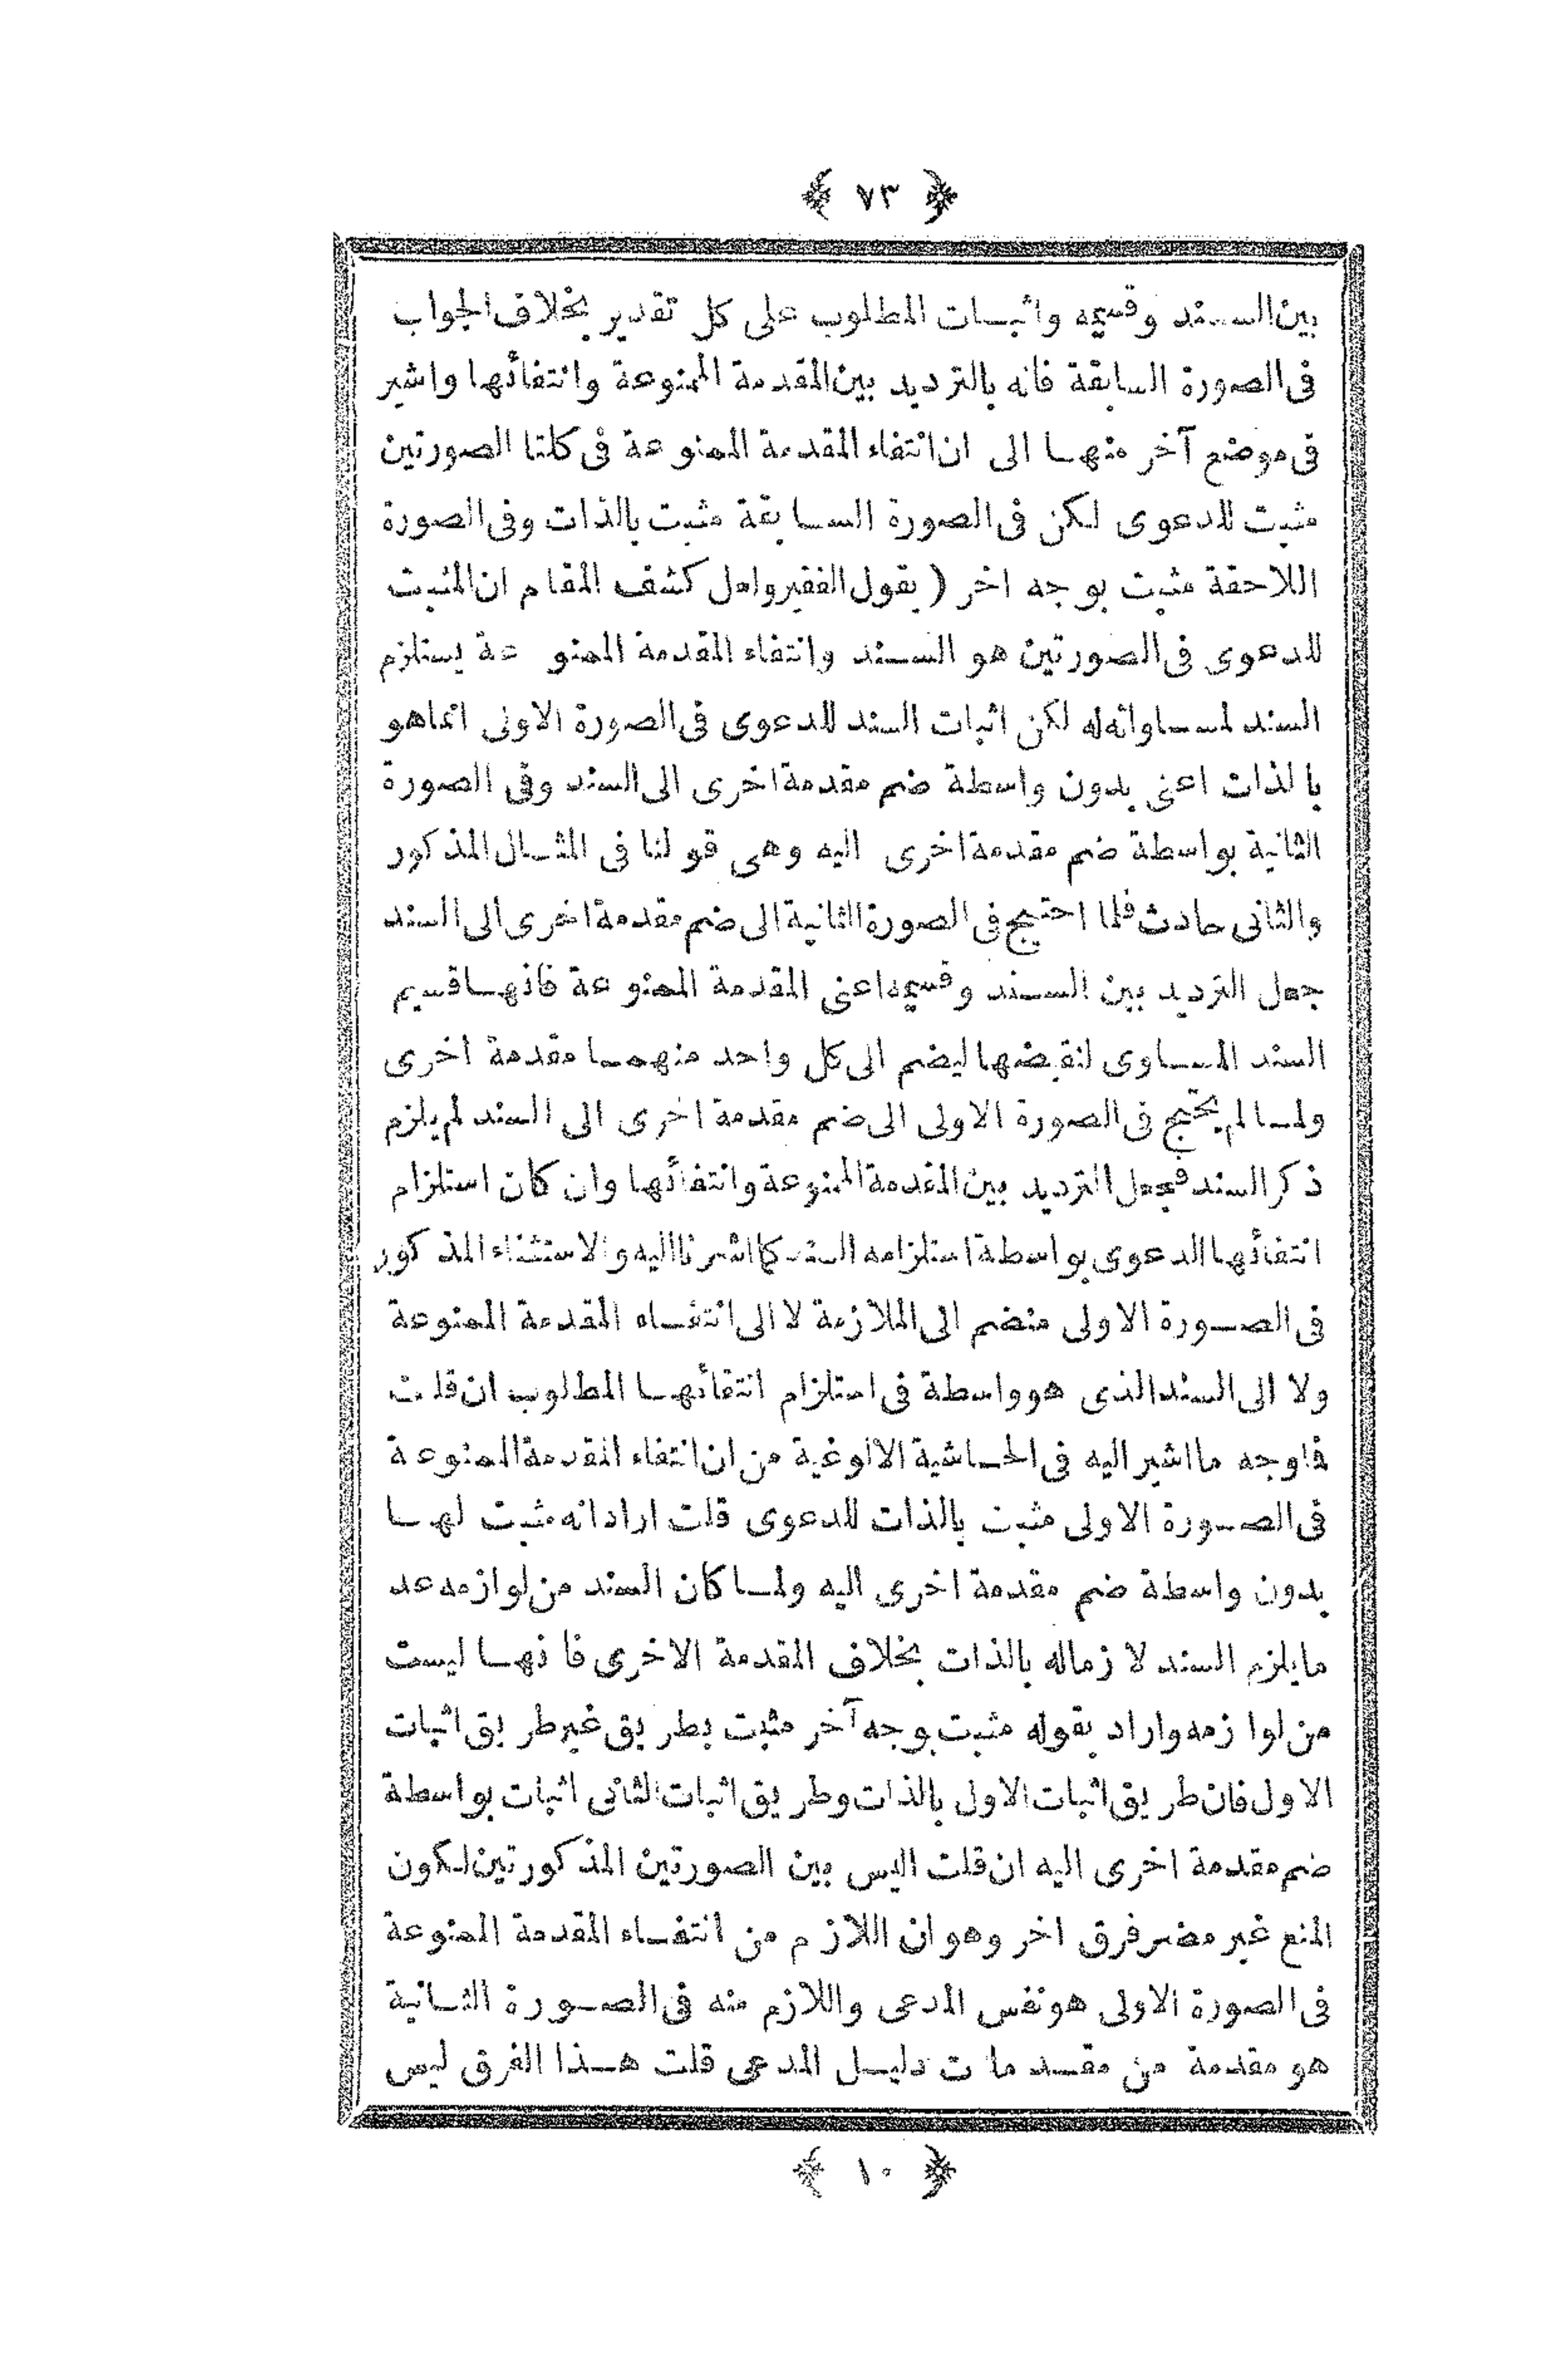 ﴿ ٧٣ ﴾
بين السند وقسيمه واثبات المطلوب على كل تقدير بخلاف الجواب
فى الصورة السابقة فانه بالترديد بين المقدمة الممنوعة وانتفائها واشير
فى موضع آخر منها الى ان انتفاء المقدمة الممنوعة فى كلتا الصورتين
مثبت للدعوى لكن فى الصورة السابقة مثبت بالذات وفى الصورة
اللاحقة مثبت بوجه اخر ( يقول الفقير ولعل كشف المقام ان المثبت
للدعوى فى الصورتين هو السند وانتفاء المقدمة الممنوعة يستلزم
السند لمساواته له لكن اثبات السند للدعوى فى الصورة الاولى انما هو
بالذات اعنى بدون واسطة ضم مقدمة اخرى الى السند وفى الصورة
الثانية بواسطة ضم مقدمة اخرى اليه وهى قولنا فى المثال المذكور
والثانى حادث فلما احتيج فى الصورة الثانية الى ضم مقدمة اخرى الى السند
جعل الترديد بين السند وقسيمه اعنى المقدمة الممنوعة فانها قسيم
السند المساوى لنقيضها ليضم الى كل واحد منهما مقدمة اخرى
ولما لم يحتج فى الصورة الاولى الى ضم مقدمة اخرى الى السند لم يلزم
ذكر السند فجعل الترديد بين المقدمة الممنوعة وانتفائها وان كان استلزام
انتفائها الدعوى بواسطة استلزامه السند كما اشرنا اليه والاستثناء المذكور
فى الصورة الاولى منضم الى الملازمة لا الى انتفاء المقدمة الممنوعة
ولا الى السند الذى هو واسطة فى استلزام انتفائها المطلوب ان قلت
فما وجه ما اشير اليه فى الحاشية الالوغية من ان انتفاء المقدمة الممنوعة
فى الصورة الاولى مثبت بالذات للدعوى قلت اراد انه مثبت لها
بدون واسطة ضم مقدمة اخرى اليه ولما كان السند من لوازمه عد
ما يلزم السند لازما له بالذات بخلاف المقدمة الاخرى فانها ليست
من لوازمه واراد بقوله مثبت بوجه آخر مثبت بطريق غير طريق اثبات
الاول فان طريق اثبات الاول بالذات وطريق اثبات الثانى اثبات بواسطة
ضم مقدمة اخرى اليه ان قلت اليس بين الصورتين المذكورتين لكون
المنع غير مضر فرق اخر وهو ان اللازم من انتفاء المقدمة الممنوعة
فى الصورة الاولى هو نفس المدعى واللازم منه فى الصورة الثانية
هو مقدمة من مقدمات دليل المدعى قلت هذا الفرق ليس
﴿ ١٠ ﴾